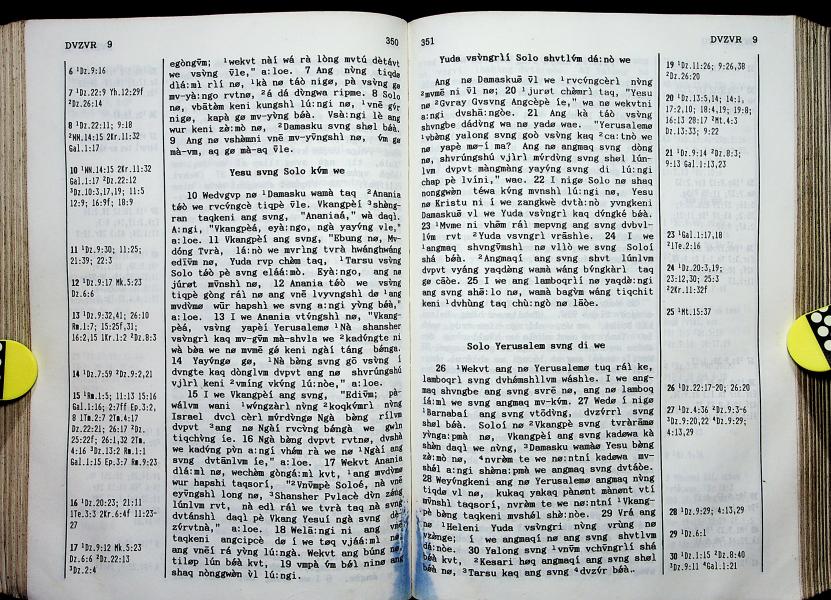 DVZVR 9
350
6 ¹Dz.9:16
7 ¹Dz.22:9 Yh.12:29f
²Dz.26:14
8 ¹Dz.22:11; 9:18
²MN.14:15 2Kr.11:32
Gal.1:17
10 ¹MN.14:15 2Kr.11:32
Gal.1:17 ²Dz.22:12
³Dz.10:3,17,19; 11:5
12:9; 16:9f; 18:9
11 ¹Dz.9:30; 11:25;
21:39; 22:3
12 ¹Dz.9:17 Mk.5:23
Dz.6:6
13 ¹Dz.9:32,41; 26:10
Rm.1:7; 15:25f,31;
16:2,15 1Kr.1:2 ²Dz.8:3
14 ¹Dz.7:59 ²Dz.9:2,21
15 ¹Rm.1:5; 11:13 15:16
Gal.1:16; 2:7ff Ep.3:2,
8 1Tm.2:7 2Tm.4:17
Dz.22:21; 26:17 ²Dz.
25:22f; 26:1,32 2Tm.
4:16 ³Dz.13:2 Rm.1:1
Gal.1:15 Ep.3:7 Rm.9:23
16 ¹Dz.20:23; 21:11
1Te.3:3 2Kr.6:4f 11:23-
27
17 ¹Dz.9:12 Mk.5:23
Dz.6:6 ²Dz.22:13
³Dz.2:4
egòngv̄m; ¹wekvt nàí wá rà lòng mvtú dètávt
we vsv̀ng v̄le," a:loe. 7 Ang nv̀ng tiqdø
dlá:ml rì nø, ¹kà nø táò nigø, pà vsv̀ng gø
mv-yà:ngo rvtnø, ²á dá dv̀ngwa ripme. 8 Solo
nø, vbātèm keni kungshl lú:ngi nø, ¹vnē gv́r
nigø, kapà gø mv-yv̀ng bǿà. Vsà:ngì lè ang
wur keni zà:mò nø, ²Damasku svng shøl bǿà.
9 Ang nø vshèmni vnē mv-yv̄ngshì nø, v́m gø
mà-vm, aq gø mà-aq v̄le.
Yesu svng Solo kv́m we
10 Wedvgvp nø ¹Damasku wamà taq ²Anania
táò we rvcv́ngcè tiqpè v̄le. Vkangpèí ³shèng-
ran taqkeni ang svng, "Ananiá," wà daqì.
A:ngi, "Vkangpèá, eyà:ngo, ngà yayv́ng v̄le,"
a:loe. 11 Vkangpèí ang svng, "Ebung nø, Mv-
dóng Tvrà, lá:nò we mvrìng tvrà hwánghwáng
edìv̄m nø, Yuda rvp chèm taq, ¹Tarsu vsv̀ng
Solo táò pè svng eláá:mò. Eyà:ngo, ang nø
júrøt mv̄nshì nø, 12 Anania táò we vsv̀ng
tiqpè gòng rál nø ang vnē lvyvngshì dø ¹ang
mvdv̀mø wūr hapshì we svng a:ngi yv̀ng bǿá,"
a:loe. 13 I we Ananiá vtv́ngshì nø, "Vkang-
pèá, vsv̀ng yapèí Yerusalemø ¹Nà shansher
vsv̀ngrì kaq mv-gv̄m mà-shvla we ²kadv́ngte ni
wà bèa we nø mvmē gø keni ngàí táng bénga.
14 Yayv́ngø gø, ¹Nà bèng svng gō vsv̀ng í
dvngte kaq dònglvm dvpvt ang nø shvrúngshú
vjlrì keni ²vmìng vkv́ng lú:nòe," a:loe.
15 I we Vkangpèí ang svng, "Edìv̄m; pà-
wálvm wanì ¹wv́ngzàrì nv̀ng ²koqkv́mrì nv̀ng
Israel dvcl cèrì mv́rdv̀ngø Ngà bèng rílvm
dvpvt ³ang nø Ngàí rvcv̀ng bø̀ngà we gwìn
tiqchv̀ng íe. 16 Ngà bèng dvpvt rvtnø, dvshà
we kadv́ng pv̀n a:ngí vhēm rà we nø ¹Ngàí ang
svng dvtānlvm íe," a:loe. 17 Wekvt Anania
dlá:ml nø, wechèm gòngá:ml kvt, ¹ang mvdv̀mø
wur hapshì taqsorí, "²Vnv̄mpè Soloé, nà vnē
eyv̄ngshì long nø, ³Shansher Pvlacè dv̀n zéng
lúnlvm rvt, nà edì rál we tvrà taq nà svng
dvtánshì daqì pè Vkang Yesuí ngà svng dē-
zv́rvtnà," a:loe. 18 Welā:ngi ni ang vnē
taqkeni angcipcè dø í we tøq vjáá:ml nø
ang vnēí rá yv̀ng lú:ngà. Wekvt ang búng nø
tiløp lún bǿà kvt, 19 vmpà v́m bǿl ninø ang
shaq nònggwèn v̀l lú:ngì.
351
DVZVR 9
Yuda vsv̀ngrìí Solo shvtlv́m dá:nò we
Ang nø Damaskuē v̄l we ¹rvcv́ngcèrì nv̀ng
²mvmē ni v̄l nø; 20 ¹jurøt chèmrì taq, "Yesu
nø ²Gvray Gvsvng Angcèpè íe," wa nø wekvtni
a:ngi dvshā:ngòe. 21 Ang kà táò vsv̀ng
shvngbe dádv̀ng wa nø yadø wáø. "Yerusalemø
¹vbèng yalong svng goò vsv̀ng kaq ²ca:tnò we
nø yapè mø-í ma? Ang nø angmaq svng dòng
nø, shvrúngshú vjlrì mv́rdv̀ng svng shøl lún-
lvm dvpvt màngmàng yayv́ng svng dì lú:ngi
chap pè lvíni," wáø. 22 I nigø Solo nø shaq
nonggwèn téwa kv́ng mvnshì lú:ngì nø, Yesu
nø Kristu ni í we zangkwè dvtà:nò yvngkeni
Damaskuē vl we Yuda vsv̀ngrì kaq dv́ngké bǿà.
23 ¹Mvmē ni vhēm rál mepvng ang svng dvbvl-
lv́m rvt ²Yuda vsv̀ngrì vrāshle. 24 I we
¹angmaq shvngv̄mshì nø vllò we svng Soloí
shá bǿà. ²Angmaqí ang svng shvt lúnlvm
dvpvt vyáng yaqdèng wamà wàng bv́ngkàrì taq
gø càòe. 25 I we ang lamboqrìí nø yaqdè:ngì
ang svng shē:lo nø, wamà bagv̀m wáng tiqchìt
keni ¹dvhùng taq chù:ngò nø làòe.
Solo Yerusalem svng di we
26 ¹Wekvt ang nø Yerusalemø tuq rál ke,
lamboqrì svng dvhémshìlvm wáshle. I we ang-
maq shvngbe ang svng svrē nø, ang nø lamboq
íá:ml we svng angmaq mv-kv́m. 27 Wedø í nigø
¹Barnabaí ang svng vtōdv̀ng, dvzv́rrì svng
shøl bǿà. Soloí nø ²Vkangpè svng tvràràmø
yv̀nga:pmà nø, Vkangpèí ang svng kadøwa kà
shv́n daqì we nv̀ng, ³Damasku wamàø Yesu bèng
zà:mò nø, ⁴nvrèm te we nø:ntnì kadøwa mv-
shøl a:ngì shèna:pmà we angmaq svng dvtáòe.
28 Weyv́ngkeni ang nø Yerusalemø angmaq nv̀ng
tiqdø vl nø, kukaq yakaq pànønt mànønt vtì
mv̄nshì taqsorí, nvrèm te we nø:ntnì ¹Vkang-
pè bèng taqkeni mvshøl shè:nòe. 29 Vrá ang
nø ¹Heleni Yuda vsv̀ngrì nv̀ng vrùng nø
vzènge; í we angmaqí nø ang svng shvtlvm
dá:nòe. 30 Yalong svng ¹vnv̄m vchv́ngrìí shá
bǿà kvt, ²Kesari høq angmaqí ang svng shøl
bǿà nø, ³Tarsu kaq ang svng ⁴dvzv́r bǿà.
19 ¹Dz.11:26; 9:26,38
²Dz.26:20
20 ¹Dz.13:5,14; 14:1,
17:2,10; 18:4,19; 19:8;
16:13 28:17 ²Mt.4:3
Dz.13:33; 9:22
21 ¹Dz.9:14 ²Dz.8:3;
9:13 Gal.1:13,23
23 ¹Gal.1:17,18
²1Te.2:16
24 ¹Dz.20:3,19;
23:12,30; 25:3
²2Kr.11:32f
25 ¹Mt.15:37
26 ¹Dz.22:17-20; 26:20
27 ¹Dz.4:36 ²Dz.9:3-6
³Dz.9:20,22 ⁴Dz.9:29;
4:13,29
28 ¹Dz.9:29; 4:13,29
29 ¹Dz.6:1
30 ¹Dz.1:15 ²Dz.8:40
³Dz.9:11 ⁴Gal.1:21